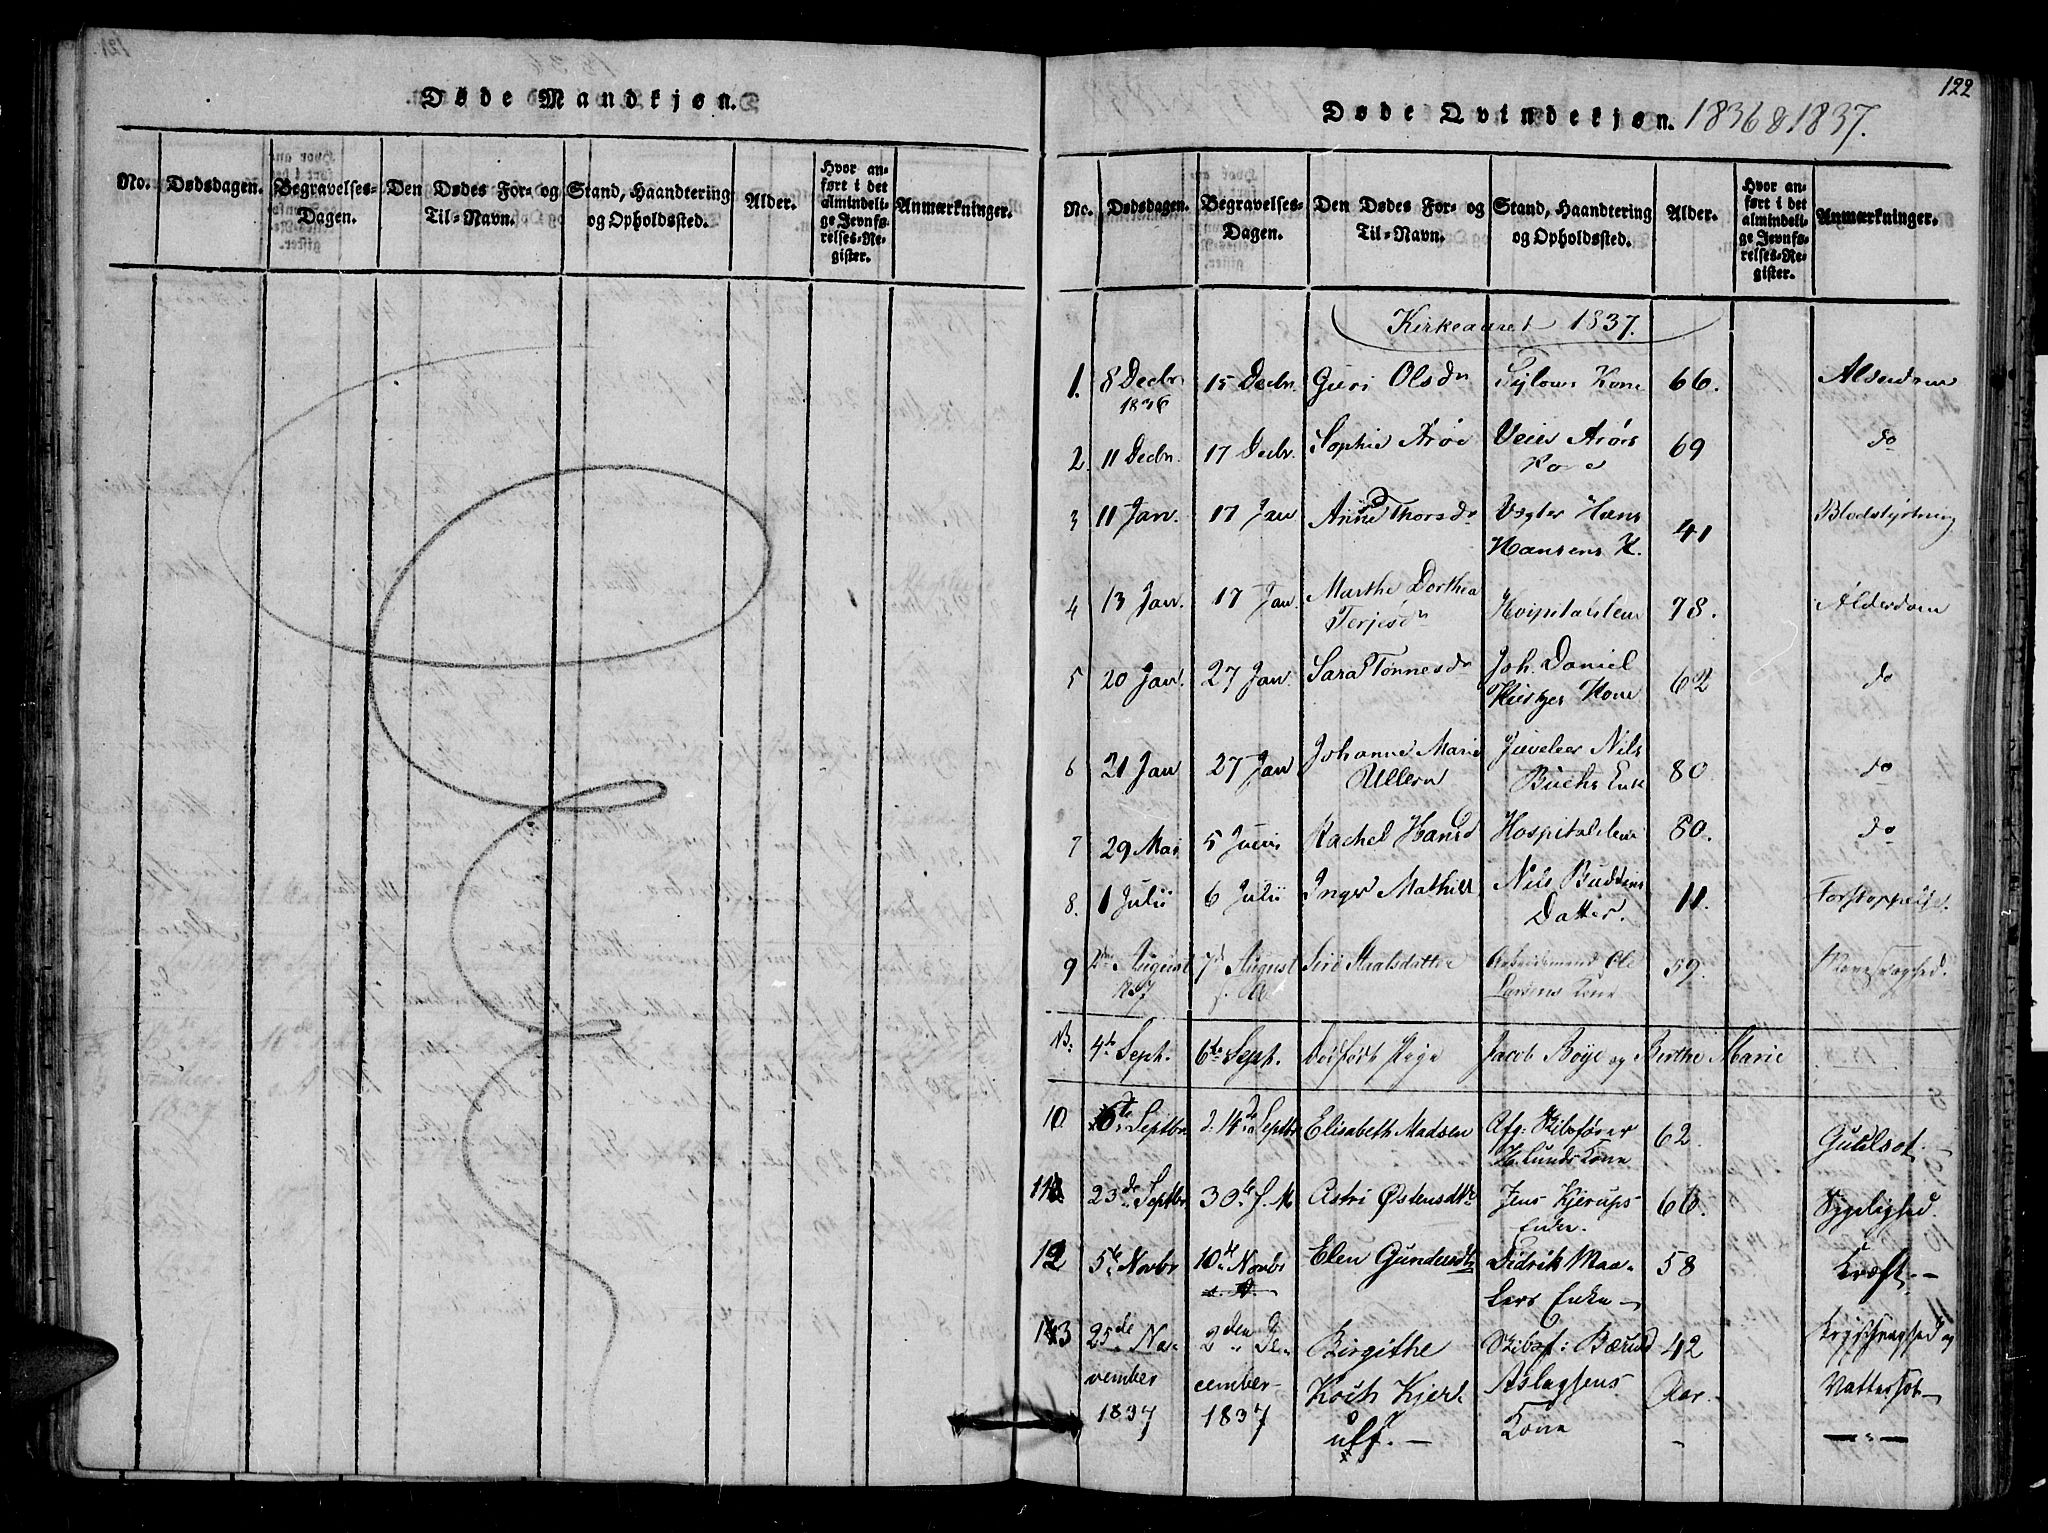 121
Døde Mandkjøn.
No.
Dødsdagen.
Begravelses-
Dagen.
Den Dødes For- og
Til-Navn.
Stand, Haandtering
og Opholdssted.
Alder.
Hvor an-
ført i det
almindeli-
ge Jevnfø-
relses-Re-
gister.
Anmærkninger.
122
Døde Qvindekjøn. 1836 & 1837.
No.
Dødsdagen.
Begravelses-
Dagen.
Den Dødes For- og
Til-Navn.
Stand, Haandtering
og Opholdssted.
Alder.
Hvor an-
ført i det
almindeli-
ge Jevnfø-
relses-Re-
gister.
Anmærkninger.
Kirkeaaret 1837.
1. 8 Decbr 15 Decbr. Guri Olsdr Kone 66. Alderdom
1836
2. 11 Decbr. 17 Decbr. Sophie Arøe Veier Arøes 69 do
Kone
3 11 Jan. 17 Jan Anne Thorsdr Vegter Hans 41 Blodstyrtning
Hansens K.
4 13 Jan. 17 Jan. Marthe Dorthea Hospitalslem 78. Alderdom
Terjesdr
5 20 Jan. 27 Jan. Sara Tønnesdr Joh. Daniel 62 do
Kone
6 21 Jan 27 Jan Johanne Marie Juveleer Nils 80. do
Ullern Buchs Enke
7 29 Mai 5 Junii Rachel Hansd Hospitalslem 80. do
8. 1 Julii 6 Julii Inger Mathild Nils Buddens 11. Forstoppelse.
Datter.
9 2den August 7de August Siri Staalsdatter Arbeidsmand Ole 59.
1837 s. A. Larsens Kone
N.B. 4de Sept. 6te Sept. Dødfødt Pige Jacob Boye og Berthe Marie
10 6te Septbr d. 14de Septbr Elisabeth Madsen Afg: Skibsfører 62. Guulsot.
Lunds Kone
11 23de Septbr 30te S. M Astri Østensdtr Jens Kjerups 66. Sygelighed.
Enke.
12 5te Novbr 10de Novbr Elen Gundersdtr Didrik Maa- 58 Kræft. —
s. A. lers Enke —
13 25de No- 2den De- Birgithe Skibsf: Bærend 42
vember cember Koch Kjerl- Aslagsens Aar. Vattersot —
1837 1837 uff. — Kone —